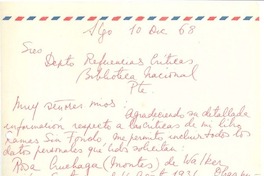 Stgo 10 Dic 68
Sres
Depto Referencias Críticas
Biblioteca Nacional
Pte.
Muy señores míos: agradeciendo su detallada
información respecto a las críticas de mi libro
Ramas Sin Fondo, me permito incluir todos los
datos personales que Uds solicitan:
Rosa Cruchaga (Montes) de Walker
1931